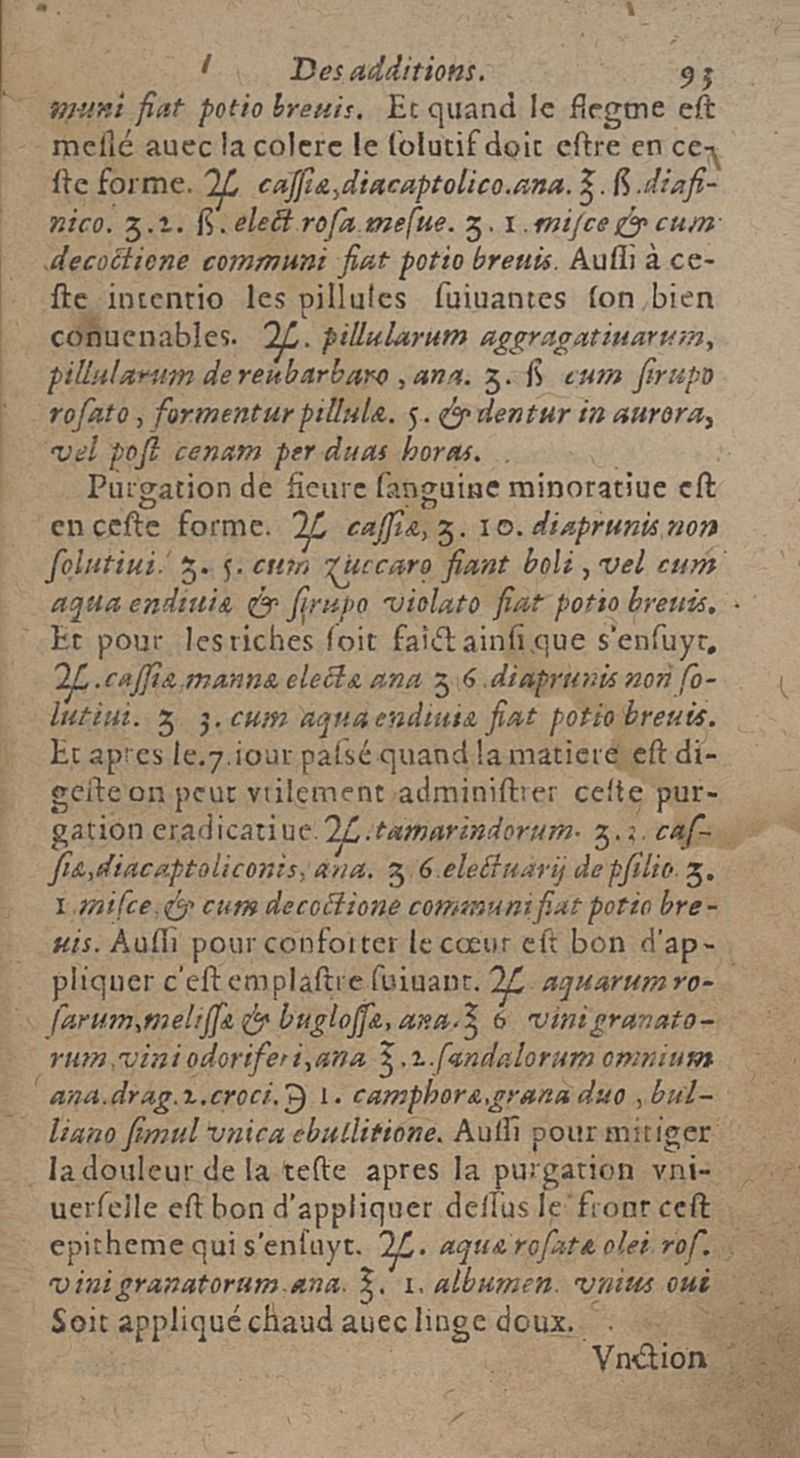 Des additions. 93
muni fiat potio breuis. Et quand le flegme eſt
meſlé auec la colere le ſolutif doit eſtre en ce-
ſte forme. ♃ caſſiæ, diacaptolico. ana. ℥. ß. diafi-
nico. ʒ. 2. ß. elect roſa. meſue. ʒ. 1. miſce & cum
decoctione communi fiat potio breuis. Auſſi à ce-
ſte intentio les pillules ſuiuantes ſon bien
conuenables. ♃. pillularum aggragatiuarum,
pillularum de reubarbaro, ana. ʒ. ß cum ſirupo
roſato, formentur pillulæ. 5. & dentur in aurora,
vel poſt cenam per duas horas.
Purgation de fieure ſanguine minoratiue eſt
en ceſte forme. ♃ caſſiæ, ʒ. 10. diaprunis non
ſolutiui. ʒ. 5. cum zuccaro fiant boli, vel cum
aqua endiuiæ & ſirupo violato fiat potio breuis.
Et pour les riches ſoit faict ainſi que s'enſuyt.
♃. caſſiæ. mannæ electæ ana ʒ 6. diaprunis non ſo-
lutiui. ʒ 3. cum aqua endiuiæ fiat potio breuis.
Et apres le. 7. iour paſsé quand la matiere eſt di-
geſte on peut vtilement adminiſtrer ceſte pur-
gation eradicatiue. ♃. tamarindorum. ʒ. 2. caſ-
ſiæ, diacaptoliconis, ana. ʒ 6. electuarij de pſilio. ʒ.
1. miſce, & cum decoctione communi fiat potio bre-
uis. Auſſi pour conforter le cœur eſt bon d'ap-
pliquer c'eſt emplaſtre ſuiuant. ♃ aquarum ro-
ſarum, meliſſæ & bugloſſæ, ana. ℥ 6 vini granato-
rum, vini odoriferi, ana ℥. 2. ſandalorum omnium
ana. drag. 2. croci. ℈ 1. camphoræ, grana duo, bul-
liano ſimul vnica ebullitione. Auſſi pour mitiger
la douleur de la teſte apres la purgation vni-
uerſelle eſt bon d'appliquer deſſus le front ceſt
epitheme qui s'enſuyt. ♃. aquæ roſatæ olei roſ.
vini granatorum. ana. ℥. 1. albumen. vnius oui
Soit appliqué chaud auec linge doux.
Vnction